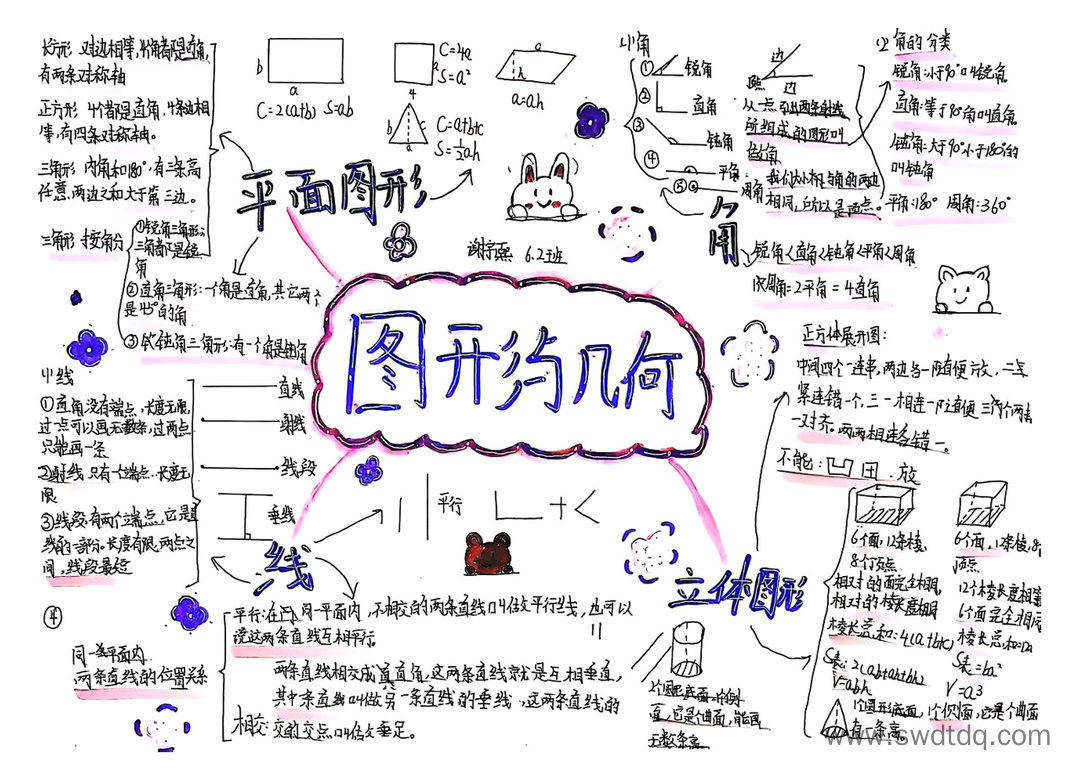 图形与几何
平面图形
长方形 对边相等,4个角都是直角,
有两条对称轴
正方形 4个都是直角,4条边相
等,有四条对称轴。
三角形 内角和180°,有三条高
任意,两边之和大于第三边。
三角形 按角分
①锐角三角形:
三角都是锐
角
②直角三角形:一个角是直角,其它两个
是45°的角
③钝角三角形:有一个角是钝角
b
a
C=2(a+b) S=ab
C=4a
S=a²
a
h
a=ah
b
c
a
C=a+b+c
S=½ah
谢宇熙 6.2班
(1)角
①
锐角
②
直角
③
钝角
④
平角
⑤
周角
边
顶点
边
从一点引出两条射线
所组成的图形叫
做角
角
(2)角的分类
锐角:小于90°叫锐角
直角:等于90°角叫直角
钝角:大于90°小于180°的
叫钝角
平角:180° 周角:360°
锐角<直角<钝角<平角<周角
1周角=2平角=4直角
正方体展开图:
不能:
放
线
(1)线
①直角没有端点,长度无限,
过一点可以画无数条,过两点
只能画一条
②射线,只有一个端点.长度无
限
③线段:有两个端点,它是直
线的一部分。长度有限,两点之
间,线段最短
直线
射线
线段
垂线
平行
④
同一平面内
两条直线的位置关系
平行:在同一平面内,不相交的两条直线叫做平行线,也可以
说这两条直线互相平行。
相交
两条直线相交成直角,这两条直线就是互相垂直,
其中一条直线叫做另一条直线的垂线,这两条直线的
交的交点,叫做垂足。
立体图形
6个面,12条棱,
8个顶点
相对的面完全相同,
相对的棱长度相同
棱长总和:4(a+b+c)
V=abh
12个棱长度相等
6个面完全相同
V=a³
1个圆形底面,1个侧面,它是个曲面
有一条高。
面,它是个曲面,能画
无数条高
www.swdtdq.com